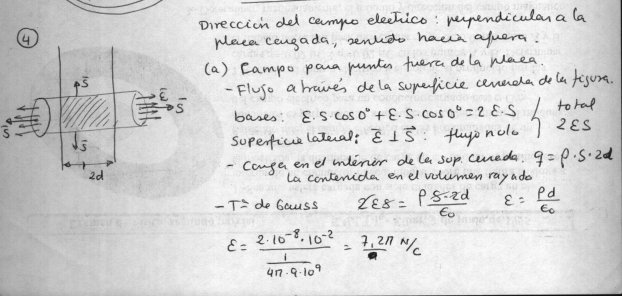 Dirección del campo eléctrico: perpendicular a la
placa cargada, sentido hacia afuera.
4
(a) Campo para puntos fuera de la placa.
- Flujo a través de la superficie cerrada de la figura.
bases: E.S.cos0° + E.S.cos0° = 2E.S
superficie lateral: E⃗ ⊥ S⃗ : flujo nulo
total
2ES
S⃗
E⃗
S⃗
S⃗
S⃗
2d
- Carga en el interior de la sup. cerrada: q = ρ.S.2d
La contenida en el volumen rayado
- Tª de Gauss 2ES = ρS.2d/ε₀ E = ρd/ε₀
E = 2.10⁻⁸.10⁻² / (1/4π.9.10⁹) = 7,2π N/C